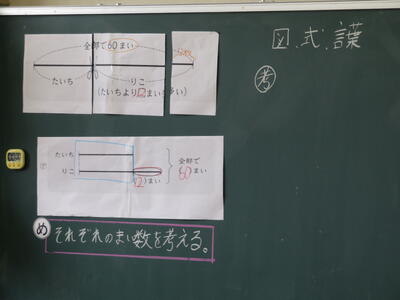 全部で60まい
たいち
りこ
(たいちより12まい多い)
図.式.言葉
考
たいち
りこ
(12)まい
全部で
60まい
め
それぞれのまい数を考える。